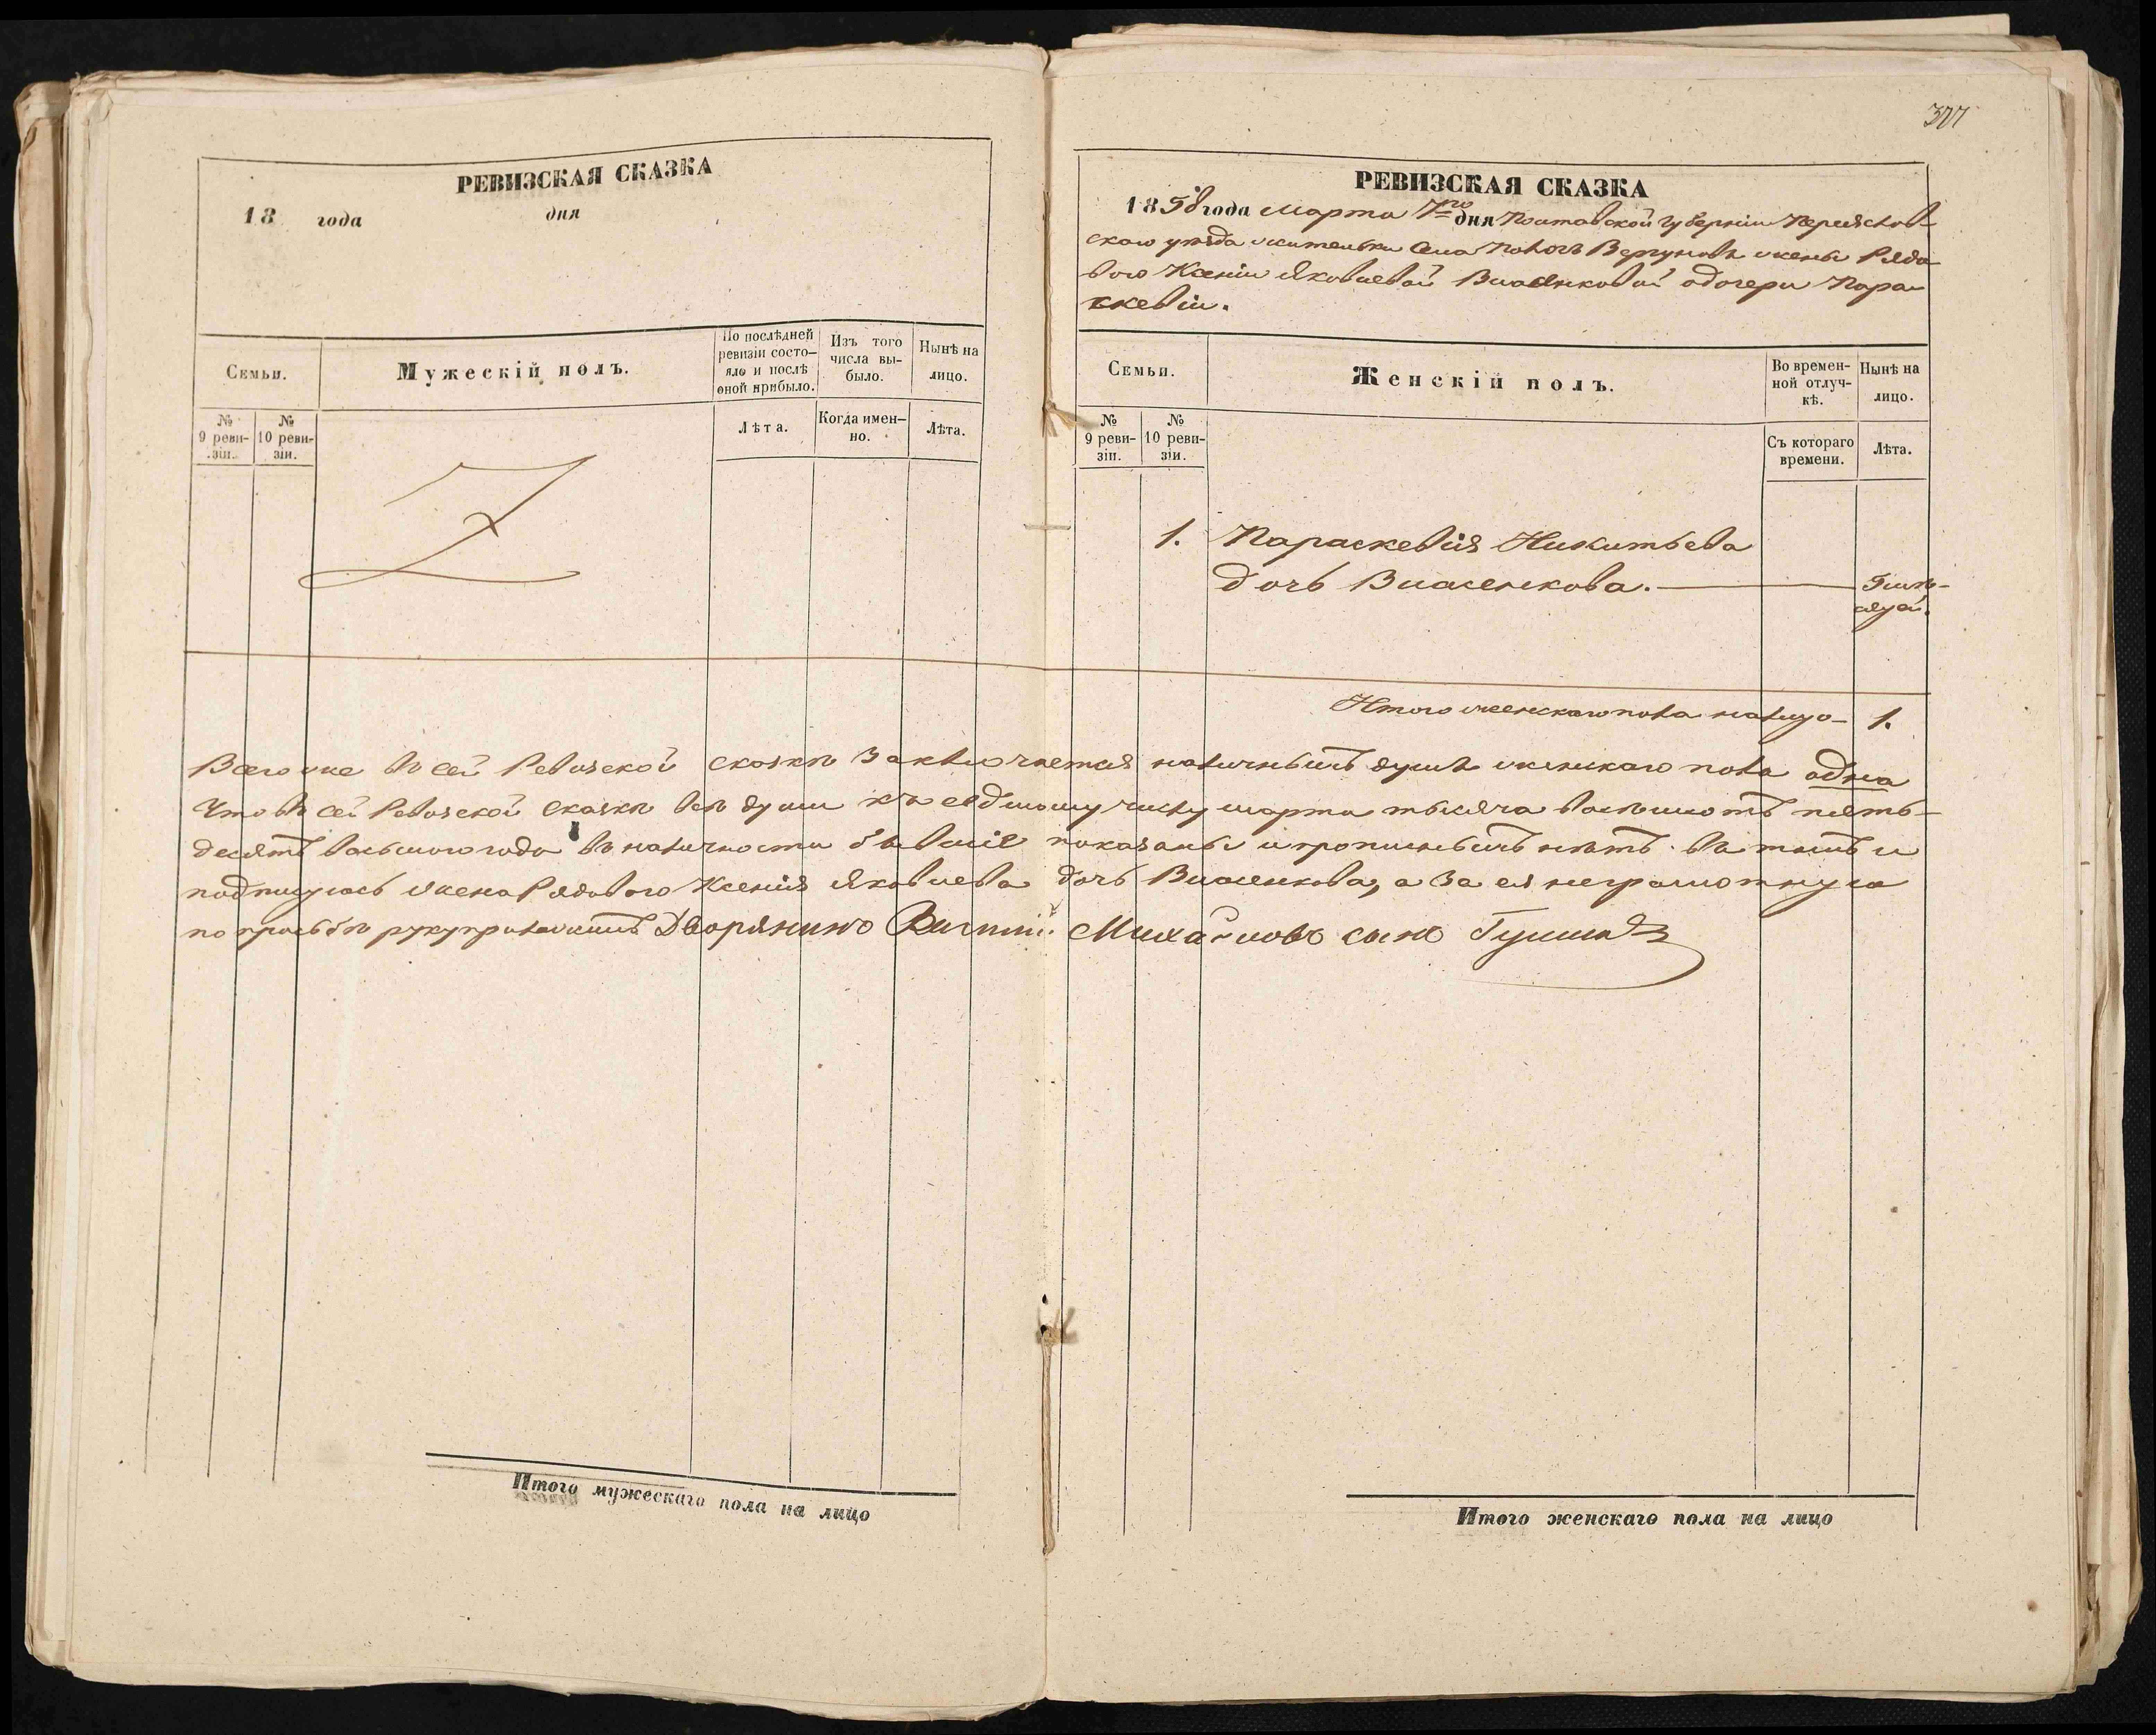 377
РЕВИЗСКАЯ СКАЗКА
18 года дня
Семьи.
Мужескій полъ.
По послѣдней
ревизіи состо-
яло и послѣ
оной прибыло.
Изъ того
числа вы-
было.
Нынѣ на
лицо.
№
9 реви-
зіи.
№
10 реви-
зіи.
Лѣта.
Когда имен-
но.
Лѣта.
РЕВИЗСКАЯ СКАЗКА
1858 года марта 7го дня Полтавской губерніи Переяслов-
скаго уѣзда жительки села Вергуновъ жены Рядо-
вого Ксеніи Яковлевой Власенковой о дочери Пара-
скевіи.
Семьи.
Женскій полъ.
Во времен-
ной отлуч-
кѣ.
Нынѣ на
лицо.
№
9 реви-
зіи.
№
10 реви-
зіи.
Съ котораго
времени.
Лѣта.
1. Параскевія Никитьева
дочь Власенкова.
Итого женскаго пола налицо 1.
Всего же въ сей Ревизской сказкѣ заключается наличныхъ душъ женскаго пола одна
Что въ сей Ревизской сказкѣ всѣ души къ седьмому числу марта тысяча восемьсотъ пять-
десятъ восьмого года въ наличности бывшіе показаны и прописныхъ нѣтъ. Въ томъ и
подписуюсь жена Рядового Ксенія Яковлева дочь Власенкова, а за ея неграмотную
по прозьбѣ руку приложилъ Дворянинъ Михайловъ сынъ
Итого мужескаго пола на лицо
Итого женскаго пола на лицо